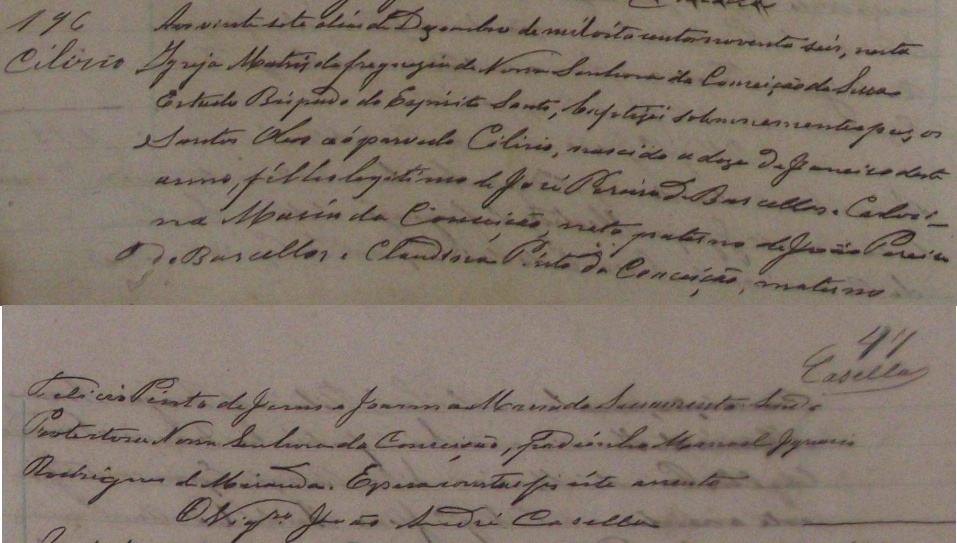 Casella
196
Cilirio
Aos vinte sete dias de Dezembro de mil oito centos noventa seis, nesta
Igreja Matriz da freguezia de Nossa Senhora da Conceição da Serra
Estado Bispado do Espirito Santo, baptizei solemnemente e puz os
Santos Oleos ao parvulo Cilirio, nascido a doze de Janeiro deste
anno, filho legitimo de José Pereira de Barcellos e Carlosi-
na Maria da Conceição, neto paterno de João Pereira
de Barcellos e Claudina Pinto da Conceição, materno
47
Casella
Felicio Pinto de Jesus e Joanna Maria do Sacramento. Sendo
Protectora Nossa Senhora da Conceição, padrinho Manoel Ignacio
Rodrigues de Miranda. E para constar fiz este assento
O Vigrº João André Casella